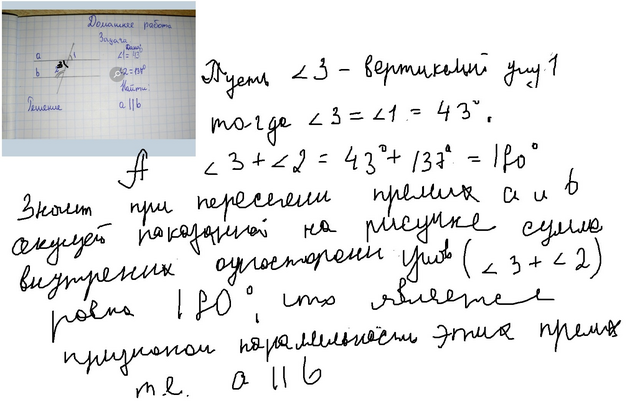 Домашнее работа
Задача
Дано:
a
1
∠1 = 43°
b
∠2 = 137°
Найти:
Решение
a || b
Пусть ∠3 - вертикальный углу 1
тогда ∠3 = ∠1 = 43°.
А ∠3 + ∠2 = 43° + 137° = 180°
Значит при пересечени прямых a и b
секущей показанной на рисунке сумма
внутрених односторони углов (∠3 + ∠2)
ровна 180°, что является
признаком паралельности этих прямых
т.е. a || b